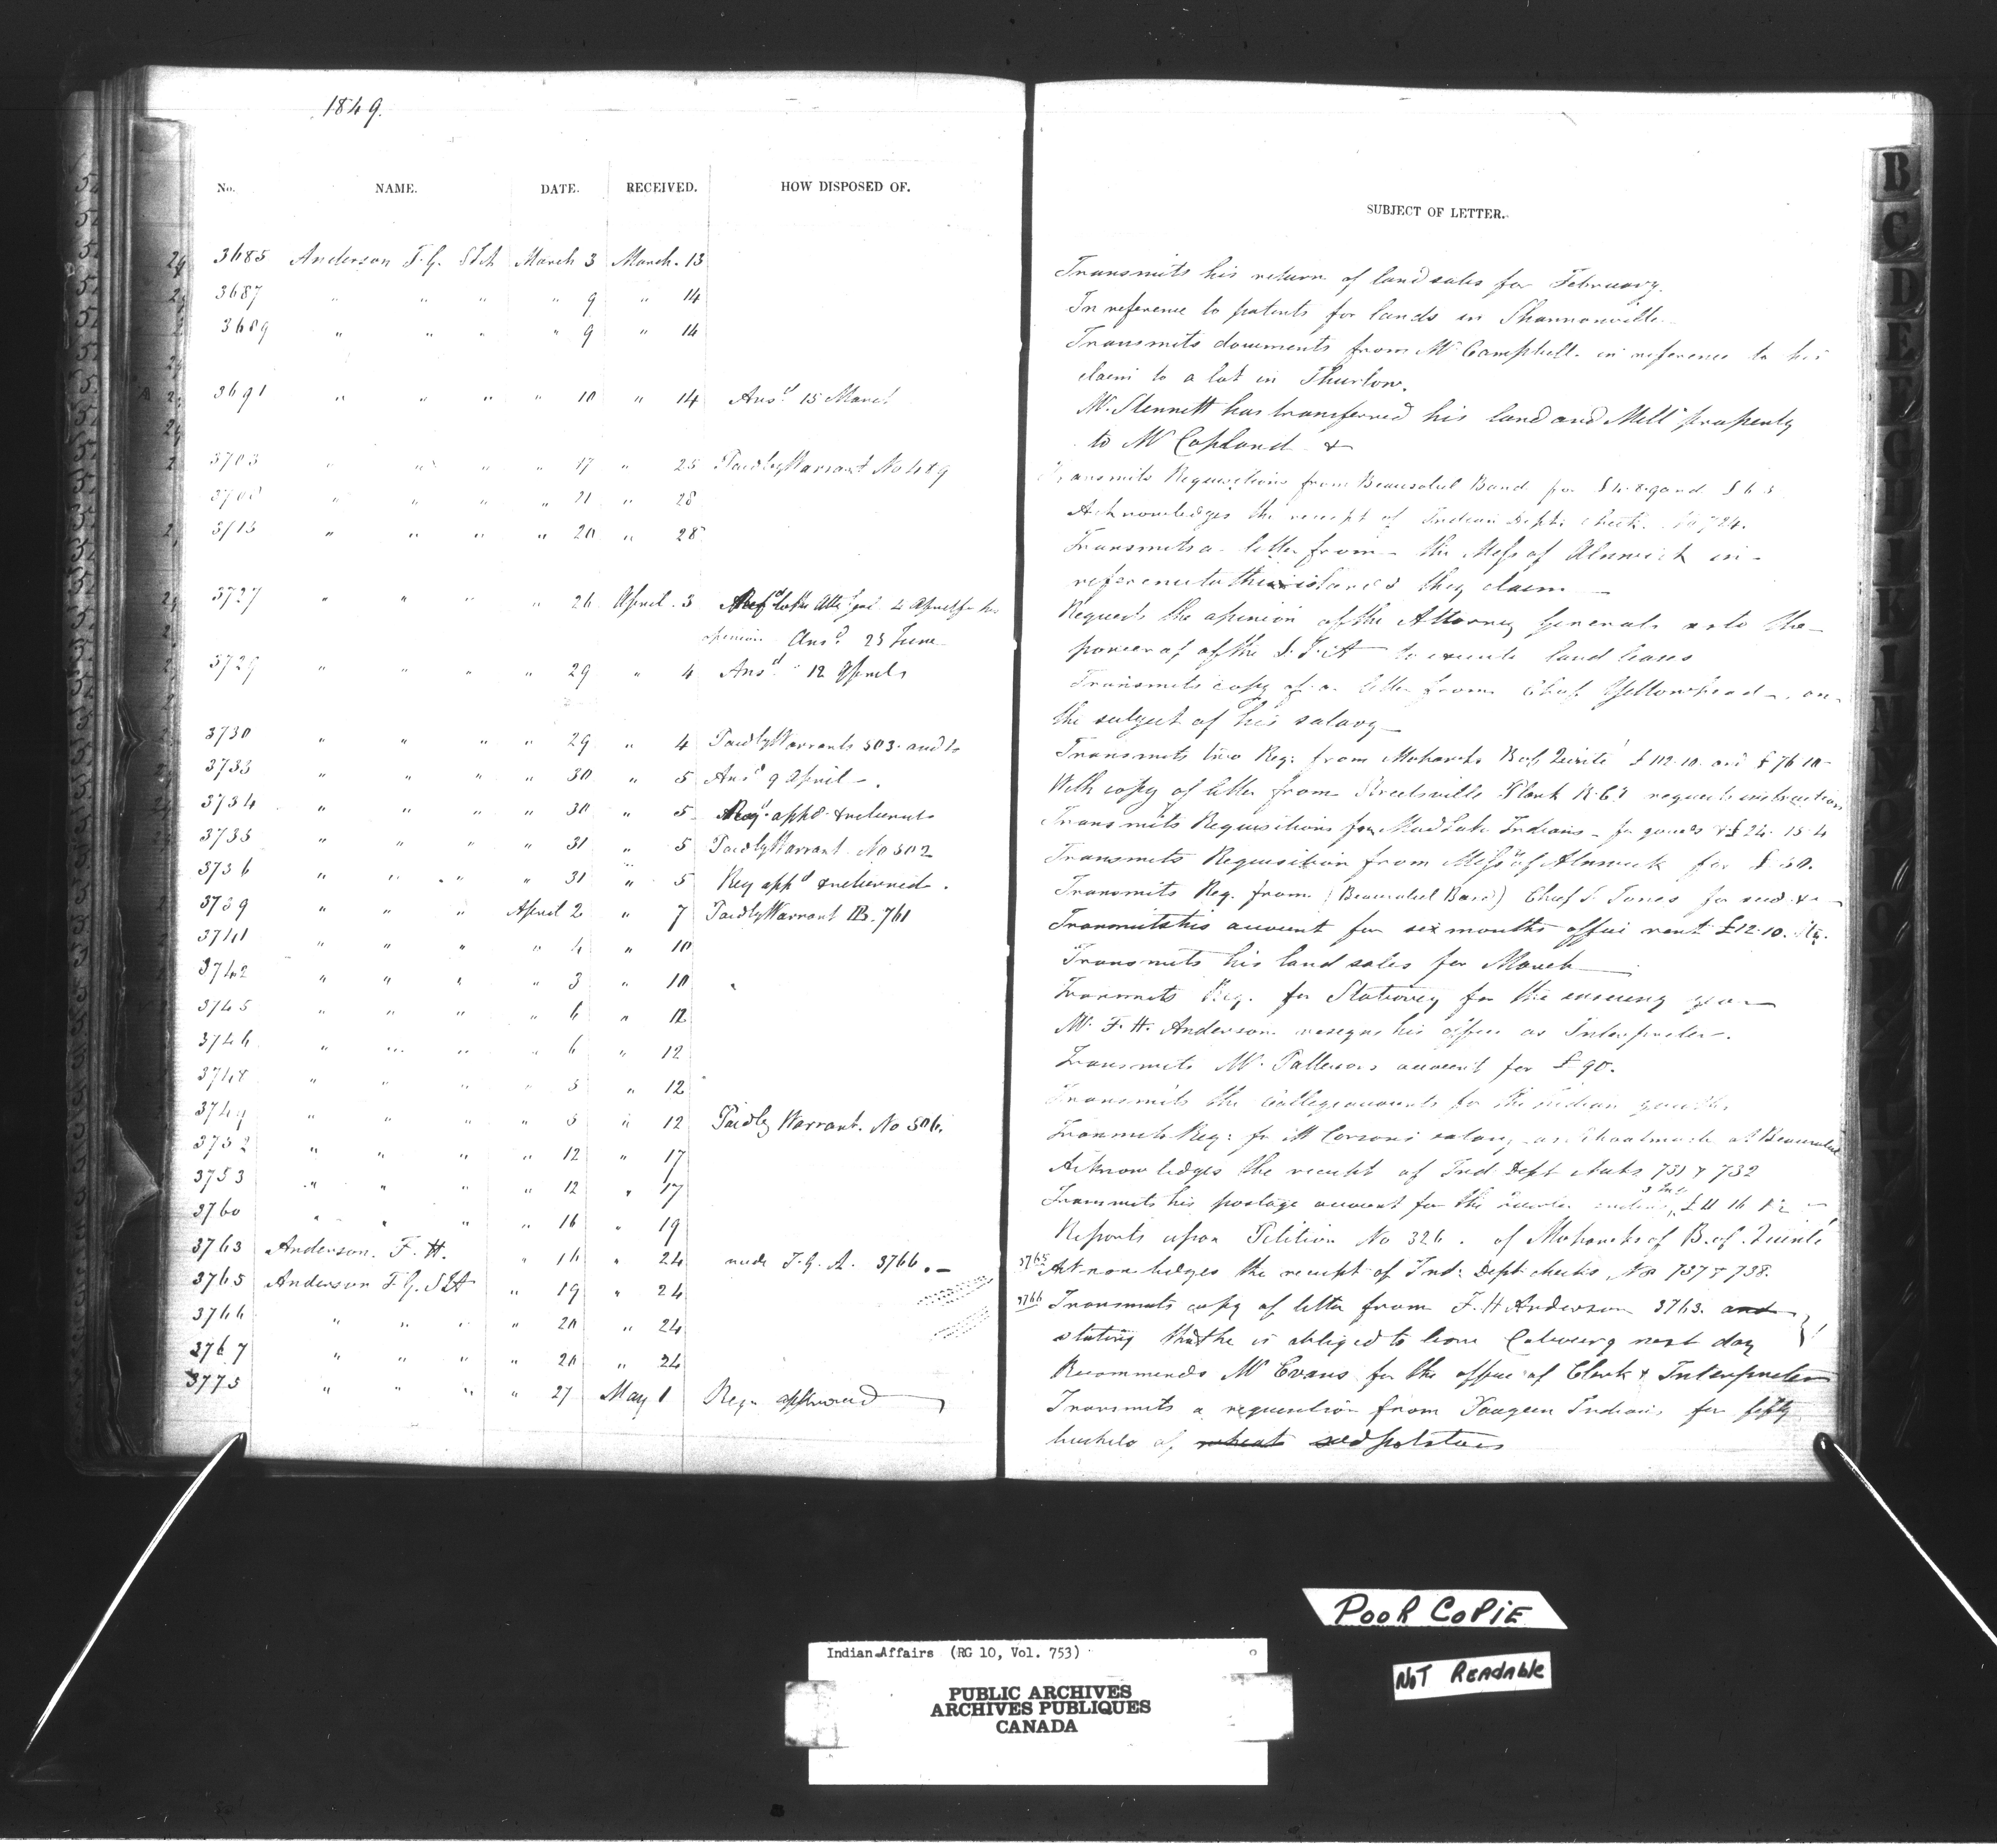 1849.
No. NAME. DATE. RECEIVED. HOW DISPOSED OF.
3685 Anderson T. G. S I A March 3 March. 13
3687 " " " " 9 " 14
3689 " " " " 9 " 14
3691 " " " " 10 " 14 Ansd 15 March
3703 " " " " 17 " 25 Paid by Warrant No 489
" " " " 21 " 28
3713 " " " " 20 " 28
3727 " " " " 26 April. 3 Refd to the Atty Genl 4 April for his
opinion Ansd 25 June
3729 " " " " 29 " 4 Ansd 12 April
3730 " " " " 29 " 4 Paid by Warrants 503. and
3733 " " " " 30 " 5 Ansd 9 April
3734 " " " " 30 " 5 Req. appd & returned
3735 " " " " 31 " 5 Paid by Warrant No 502
3736 " " " " 31 " 5 Req appd & returned.
3739 " " " April 2 " 7 Paid by Warrant B. 761
3741 " " " " 4 " 10
3742 " " " " 3 " 10 "
3745 " " " " 6 " 12
3746 " " " " 6 " 12
3748 " " " " 5 " 12
3749 " " " " 5 " 12 Paid by Warrant. No 506.
3752 " " " " 12 " 17
3753 " " " " 12 " 17
3760 " " " " 16 " 19
3763 Anderson. F. H. " 16 " 24 vide T. G. A. 3766.
3765 Anderson T. G. S I A " 19 " 24
3766 " " " " 20 " 24
3767 " " " " 20 " 24
3775 " " " " 27 May 1 Reqn approved
SUBJECT OF LETTER.
Transmits his return of land sales for February.
In reference to patents for lands in Shannonville
Transmits documents from Mr Campbell. in reference to his
claim to a lot in Thurlow.
Mr. Stennett has transferred his land and Mill property
to Mr Copland &
Transmits Requisitions from Beausoleil Band for and
Acknowledges the receipt of Indian Dept. check. No 724.
Transmits a letter from the Missss of Alnwick in
reference to the islands they claim
Requests the opinion of the Attorney General as to the
power of of the S. I. A to execute land leases
Transmits copy of a letter from Chief Yellowhead on
the subject of his salary
Transmits two Req: from Mohawks B of Quinté £112.10. and £76.10
With copy of letter from Streetsville Plank R. Co requests instructions
Transmits Requisitions from Mud Lake Indians for goods & £24. 15. 4
Transmits Requisition from Misss of Alnwick for £50.
Transmits Req. from (Beausoleil Band) Chief J. Jones for seed &c
Transmits his account for six months office rent £12. 10.
Transmits his land sales for March
Transmits Req. for Stationery for the ensuing year
Mr. F. H. Anderson resigns his office as Interpreter.
Transmits Mr. Patterson's account for £90.
Transmits the college accounts for the indian youths
Transmits Req: for Mr Corson's salary as Schoolmaster at Beausoleil
Acknowledges the receipt of Ind Dept checks 731 & 732
Transmits his postage account for the quarter ending £11 16
Reports upon Petition No 326. of Mohawks of B. of Quinté
3765 Acknowledges the receipt of Ind: Dept: checks No 737 & 738.
3766 Transmits copy of letter from F. H Anderson 3763. and
stating that he is obliged to leave Cobourg next day
Recommends Mr Evans for the office of Clerk & Interpreter
Transmits a requisition from Saugeen Indians for fifty
bushels of wheat seed potatoes
B
C
D
E
F
G
H
I
K
POOR COPIE
NOT READABLE
Indian Affairs (RG 10, Vol. 753)
PUBLIC ARCHIVES
ARCHIVES PUBLIQUES
CANADA